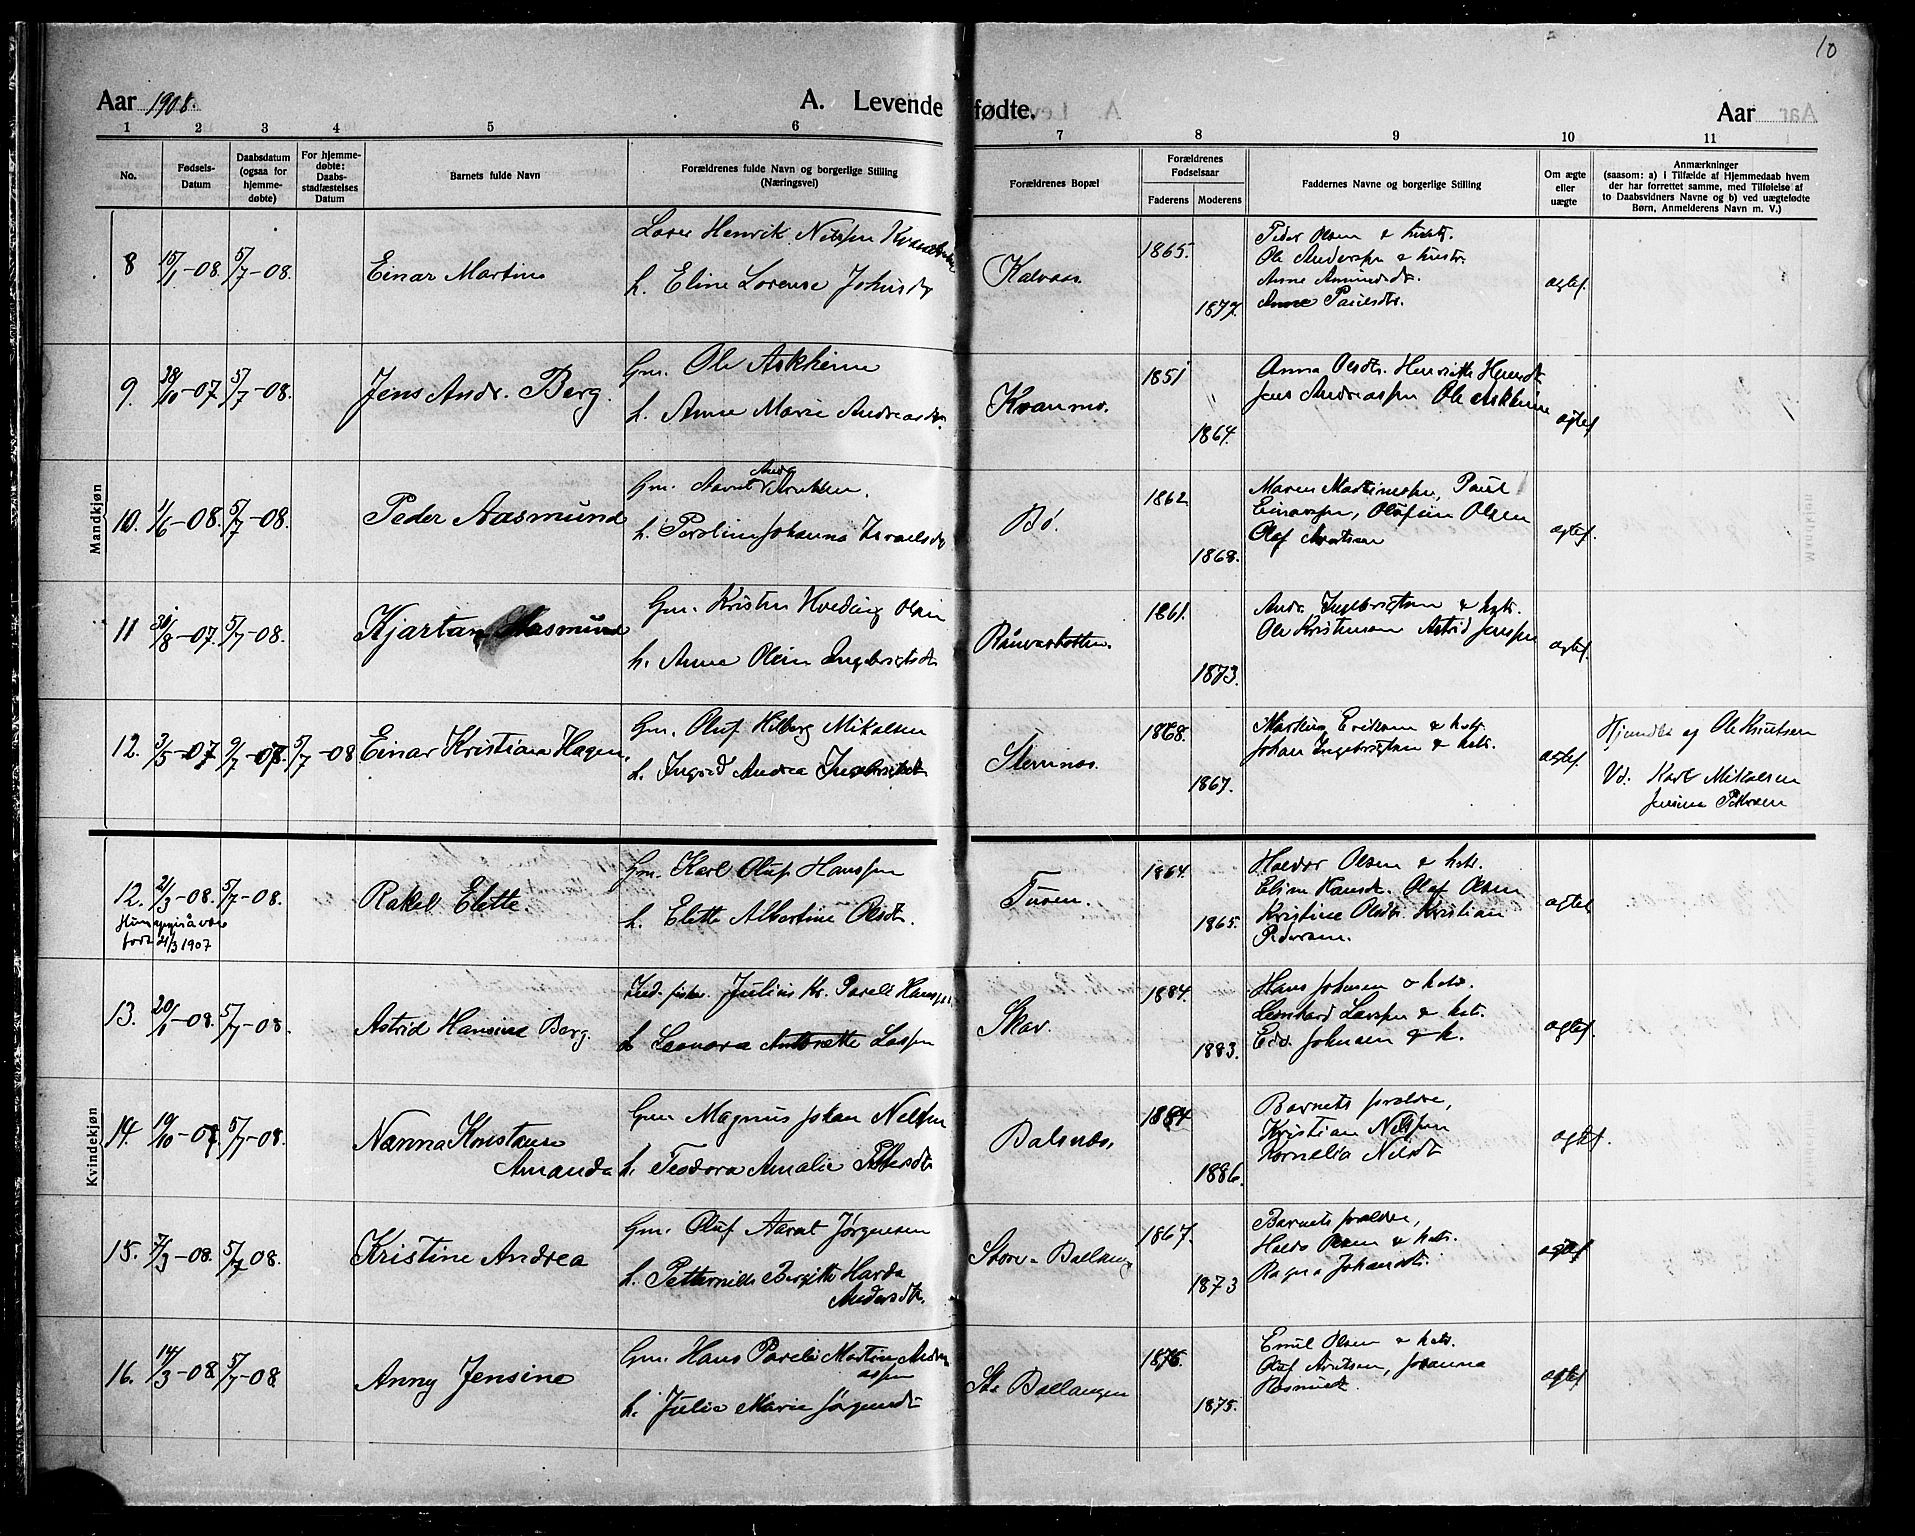 10
Aar 1908. A. Levende fødte. Aar
1 2 3 4 5 6 7 8 9 10 11
No.
Fødsels-
Datum
Daabsdatum
(ogsaa for
hjemme-
døbte)
For hjemme-
døbte:
Daabs-
stadfæstelses
Datum
Barnets fulde Navn
Forældrenes fulde Navn og borgerlige Stilling
(Næringsvei)
Forældrenes Bopæl
Forældrenes
Fødselsaar
Faderens Moderens
Faddernes Navne og borgerlige Stilling
Om ægte
eller
uægte
Anmærkninger
(saasom: a) i Tilfælde af Hjemmedaab hvem
der har forrettet samme, med Tilføielse af
to Daabsvidners Navne og b) ved uægtefødte
Børn, Anmelderens Navn m. V.)
Mandkjøn
8 15/1-08. 5/7-08. Einar Martin
Henrik Nilssen
h. Eline Lorense Johnsdt
1865.
1877.
Peder Olsen & hustr.
Ole Anderssen & hustr.
Anne Amundsdt.
Anne Paulsdt.
ægtef.
9. 28/10-07 5/7-08. Jens Andr. Berg.
Gm. Ole Askheim
h. Anne Marie Andreasdtr.
Kvannes.
1851
1864.
Anna Olsdtr. Henrikke
Jens Andreassen Ole Askheim
ægtef
10. 1/6-08. 5/7-08. Peder Aasmund
Gm.
h. Johanna Israelsdt
Bø.
1862
1868.
Maren Martinessen, Paul
Einarssen, Olufine Olsen
Olaf Arntsen
ægtef.
11 5/7-08. Kjartan Aasmund
Gm. Kristen Hveding Olsen
h. Anne Olein Ingebrigtsdt
1861.
1873.
Andr. Ingebrigtsen & hstr.
Ole Kristensen Astrid Jenssen
ægtef.
12. 3/5-07 9/7-07. 5/7-08 Einar Kristian Hagen.
Gm. Oluf Hilberg Mikalsen
h. Ingrid Andrea Ingebrigtsdt
1868.
1867.
Martin Eriksen & hstr.
Johan Ingebrigtsen & hstr.
ægtef.
Hjemdbt. og Ole Knutsen
Vd. Karl Mikalsen
Jensine Petersen
Kvindekjøn
12. 21/3-08. 5/7-08. Rakel Elette.
født 21/3 1907
Gm. Karl Oluf Hanssen
h. Elette Albertine Olsdt.
1864.
1865.
Haldor Olsen & hstr.
Elise Hansdt. Olaf Olsen
Kristine Olsdtr. Kristian
Pedersen.
ægtef
13. 20/1-08. 5/7-08. Astrid Hansine Berg.
Julius Kr. Pareli Hanssen
h Leonora Antonette Lassen
Skar.
1884.
1883.
Hans Johnsen & hstr.
Leonhard Larssen & hstr.
Edv. Johnsen & h.
ægtef.
14. 19/10-07. 5/7-08. Nanna Konstanse
Amanda
Gm Magnus Johan Nilssen
h. Teodora Amalie Pettersdt
Balsnes.
1884
1886.
Barnets forældre,
Kristian Nilssen
Kornelia Nilsdt
ægtef.
15. 7/3-08. 5/7 08. Kristine Andrea
Gm. Oluf Aarnt Jørgensen
h. Petternille Bergitte Harda
Andersdtr.
Store-Ballangen
1867.
1873
Barnets forældre,
Haldo Olsen & hstr.
Ragna Johansdt.
ægtef
16. 14/3-08 5/7-08. Anny Jensine
Gm. Hans Pareli Martin Andre-
assen
h. Julie Marie Jørgensdt
St. Ballangen
1876.
1875.
Emil Olsen & hstr.
Oluf Arntsen, Johanna
Rasmusdt.
ægtef